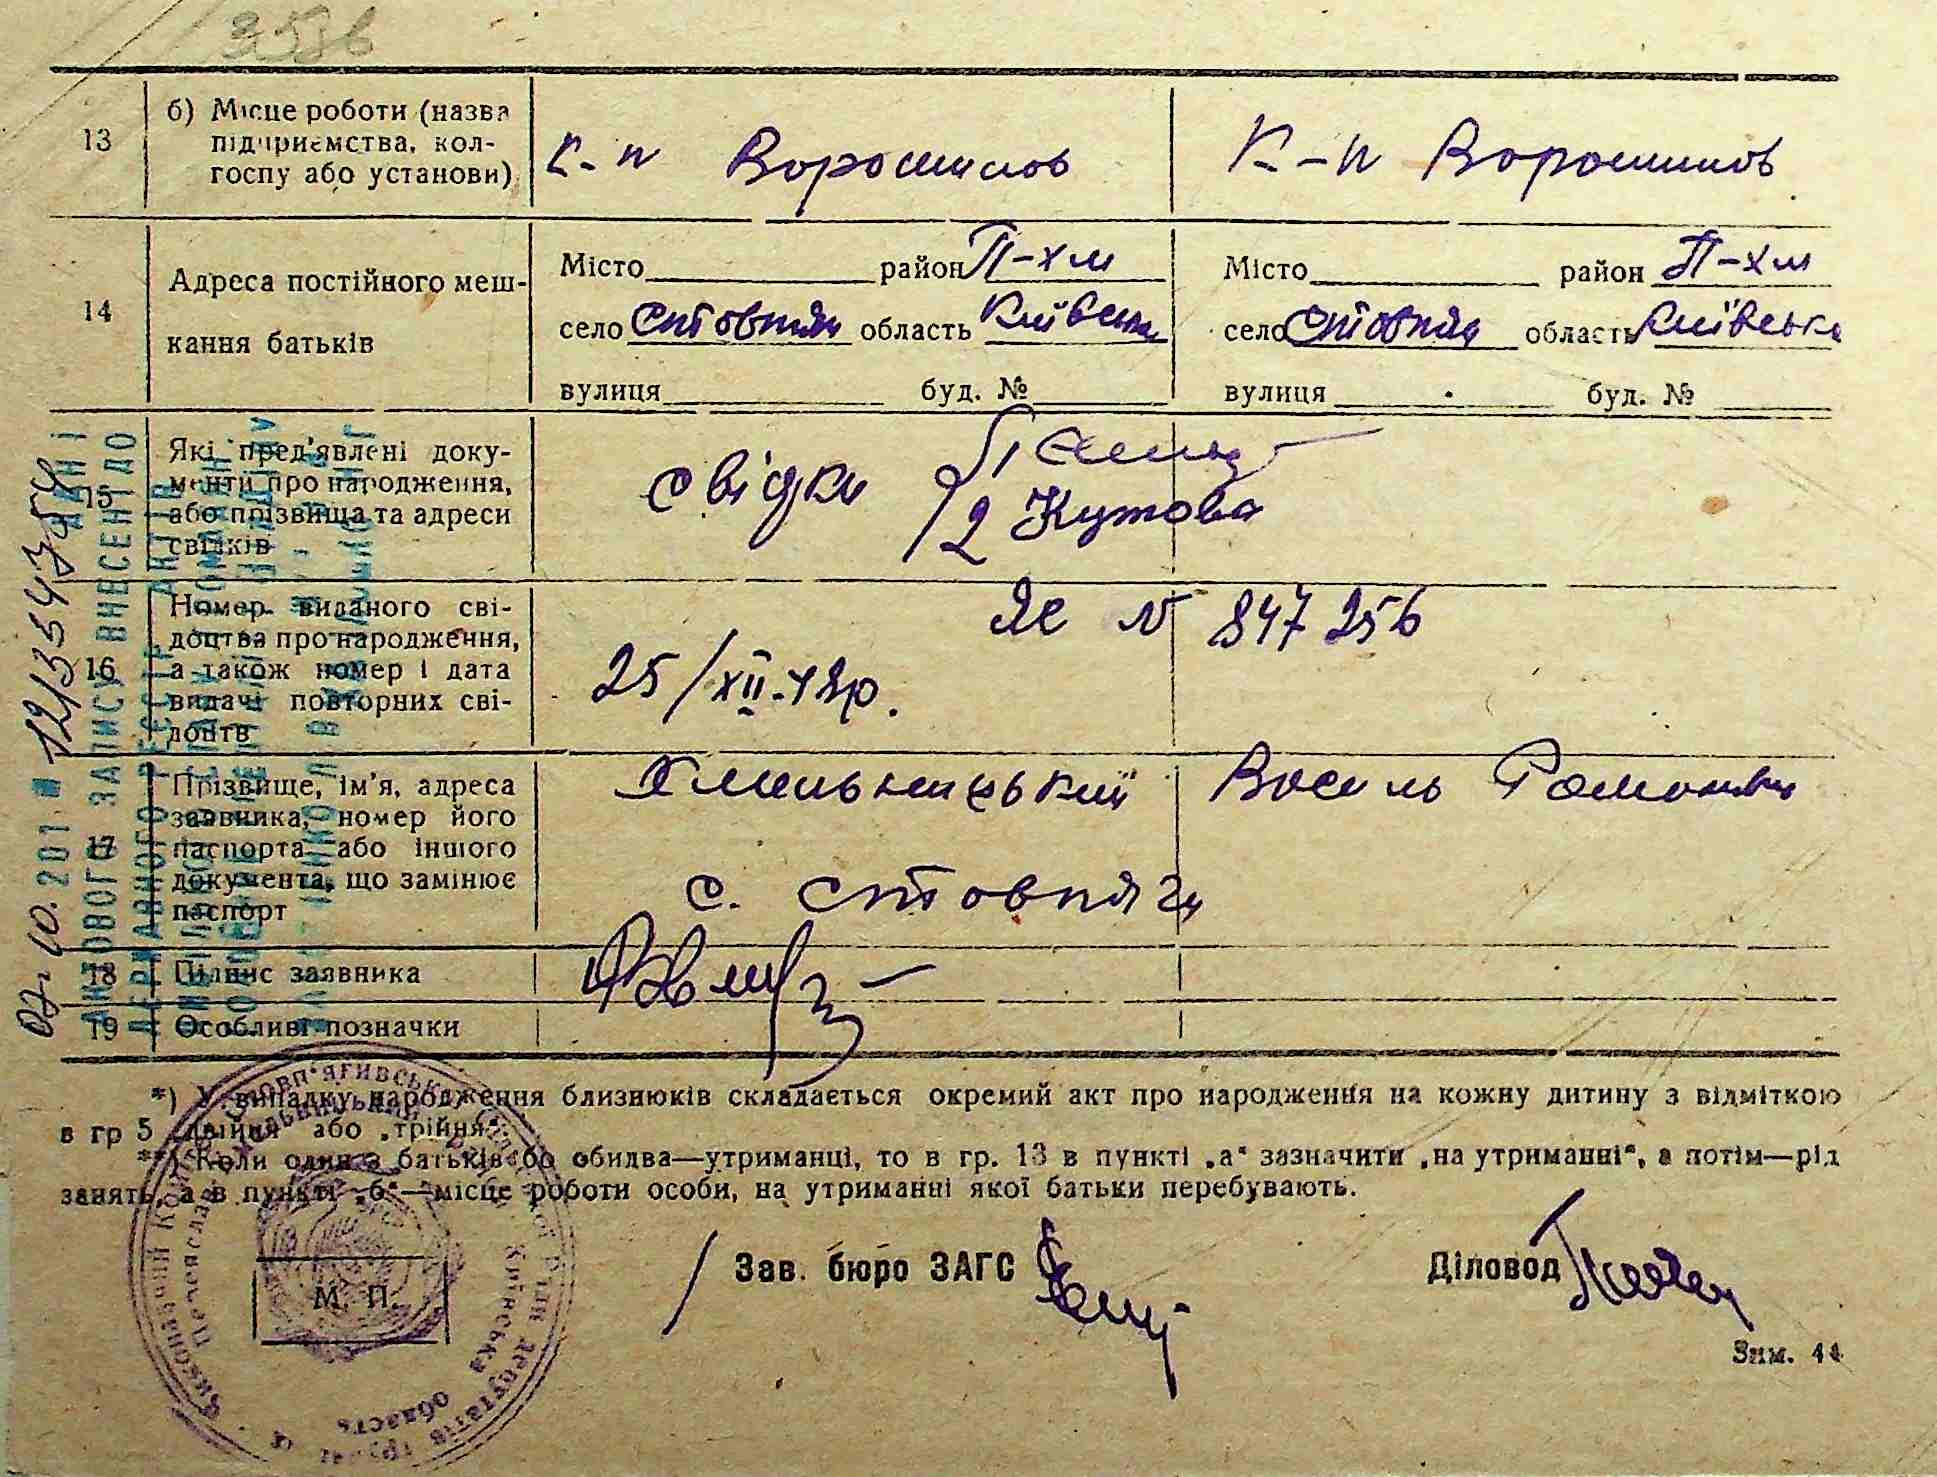 13
б) Місце роботи (назва
підприємства, кол-
госпу або установи)
К-п Ворошилов
К-п Ворошилов
14
Адреса постійного меш-
кання батьків
Місто район П-Хм
село Стовпяги область Київська
вулиця буд. №
Місто район П-Хм
село Стовпяги область Київська
вулиця буд. №
15
Які пред'явлені доку-
менти про народження,
або прізвища та адреси
свідків
свідки 1
2 Кутова
16
Номер виданого сві-
доцтва про народження,
а також номер і дата
видачі повторних сві-
доцтв
ЯЄ № 847256
25/XII-48р.
17
Прізвище, ім'я, адреса
заявника, номер його
паспорта або іншого
документа, що замінює
паспорт
Хмельницький Василь Романович
с. Стовпяги
18
Підпис заявника
19
Особливі позначки
*) У випадку народження близнюків складається окремий акт про народження на кожну дитину з відміткою
в гр 5 „двійня" або „трійня".
**) Коли один з батьків або обидва—утриманці, то в гр. 13 в пункті „а" зазначити „на утриманні", а потім—рід
занять, а в пункті „б"—місце роботи особи, на утриманні якої батьки перебувають.
М. П.
Зав. бюро ЗАГС
Діловод
Зам. 44
АКТОВОГО ЗАПИСУ ВНЕСЕНІ ДО
Київська область